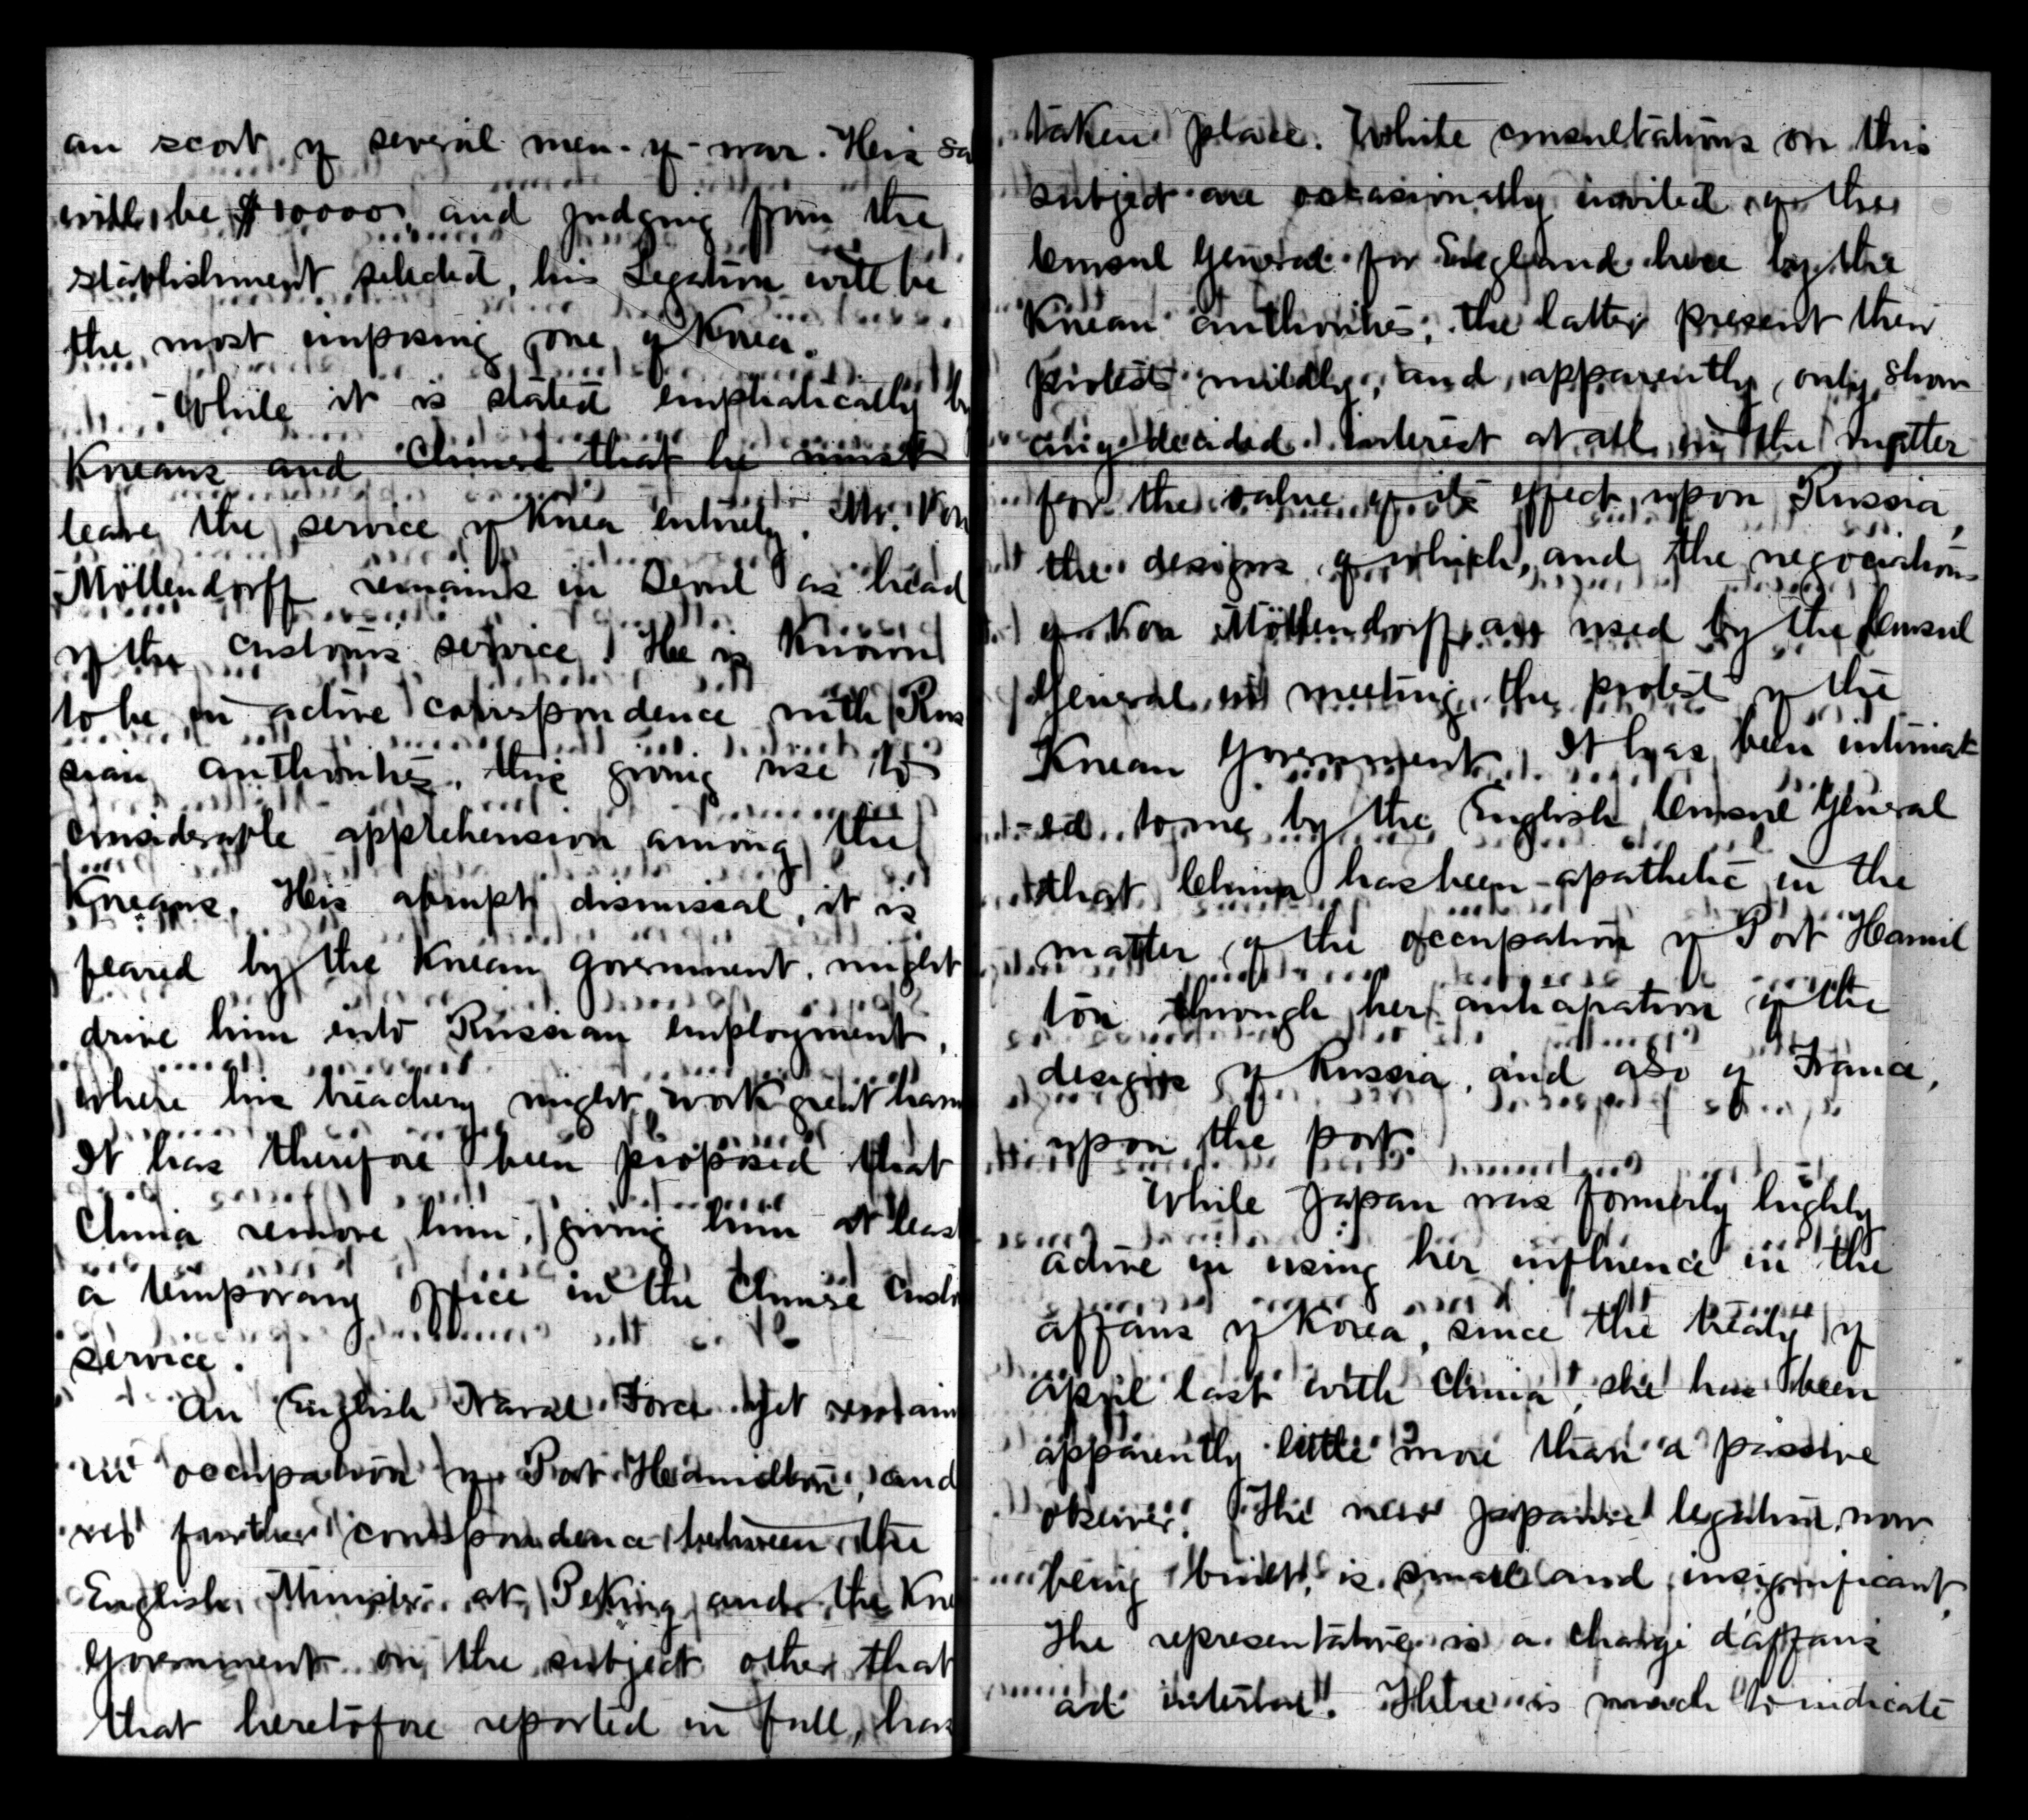 an scort of several men-of-war. His sa
will be $10000, and judging from the
establishment selected, his Legation will be
the most imposing one of Korea.
While it is stated emphatically by
Koreans and Chinese that he must
leave the service of Korea entirely, Mr. Von
Möllendorff remains in Seoul as head
of the customs service. He is known
to be in active correspondence with Rus
sian authorities, this giving rise to
considerable apprehension among the
Koreans. His abrupt dismissal, it is
feared by the Korean Government, might
drive him into Russian employment,
where his treachery might work great harm
It has therefore been proposed that
China remove him, giving him at least
a temporary office in the Chinese Custo
service.
An English Naval Force yet remain
in occupation of Port Hamilton, and
no further correspondence between the
English Minister at Peking and the Kore
Government on the subject other that
that heretofore reported in full, has
taken place. While consultations on this
subject are occasionally invited of the
Consul General for England here by the
Korean authorities, the latter present their
protests mildly, and, apparently, only show
any decided interest at all in the matter
for the value of its effect upon Russia,
the designs of which, and the negociations
of Von Möllendorff, are used by the Consul
General in meeting the protest of the
Korean Government. It has been intimat
-ed to me by the English Consul General
that China has been apathetic in the
matter of the occupation of Port Hamil
ton through her anticipation of the
designs of Russia, and also of France,
upon the port.
While Japan was formerly highly
active in using her influence in the
affairs of Korea, since the treaty of
April last with China, she has been
apparently little more than a passive
observer. The new Japanese legation, now
being built, is small and insignificant,
the representative is a chargé d'affairs
ad interim. There is much to indicate